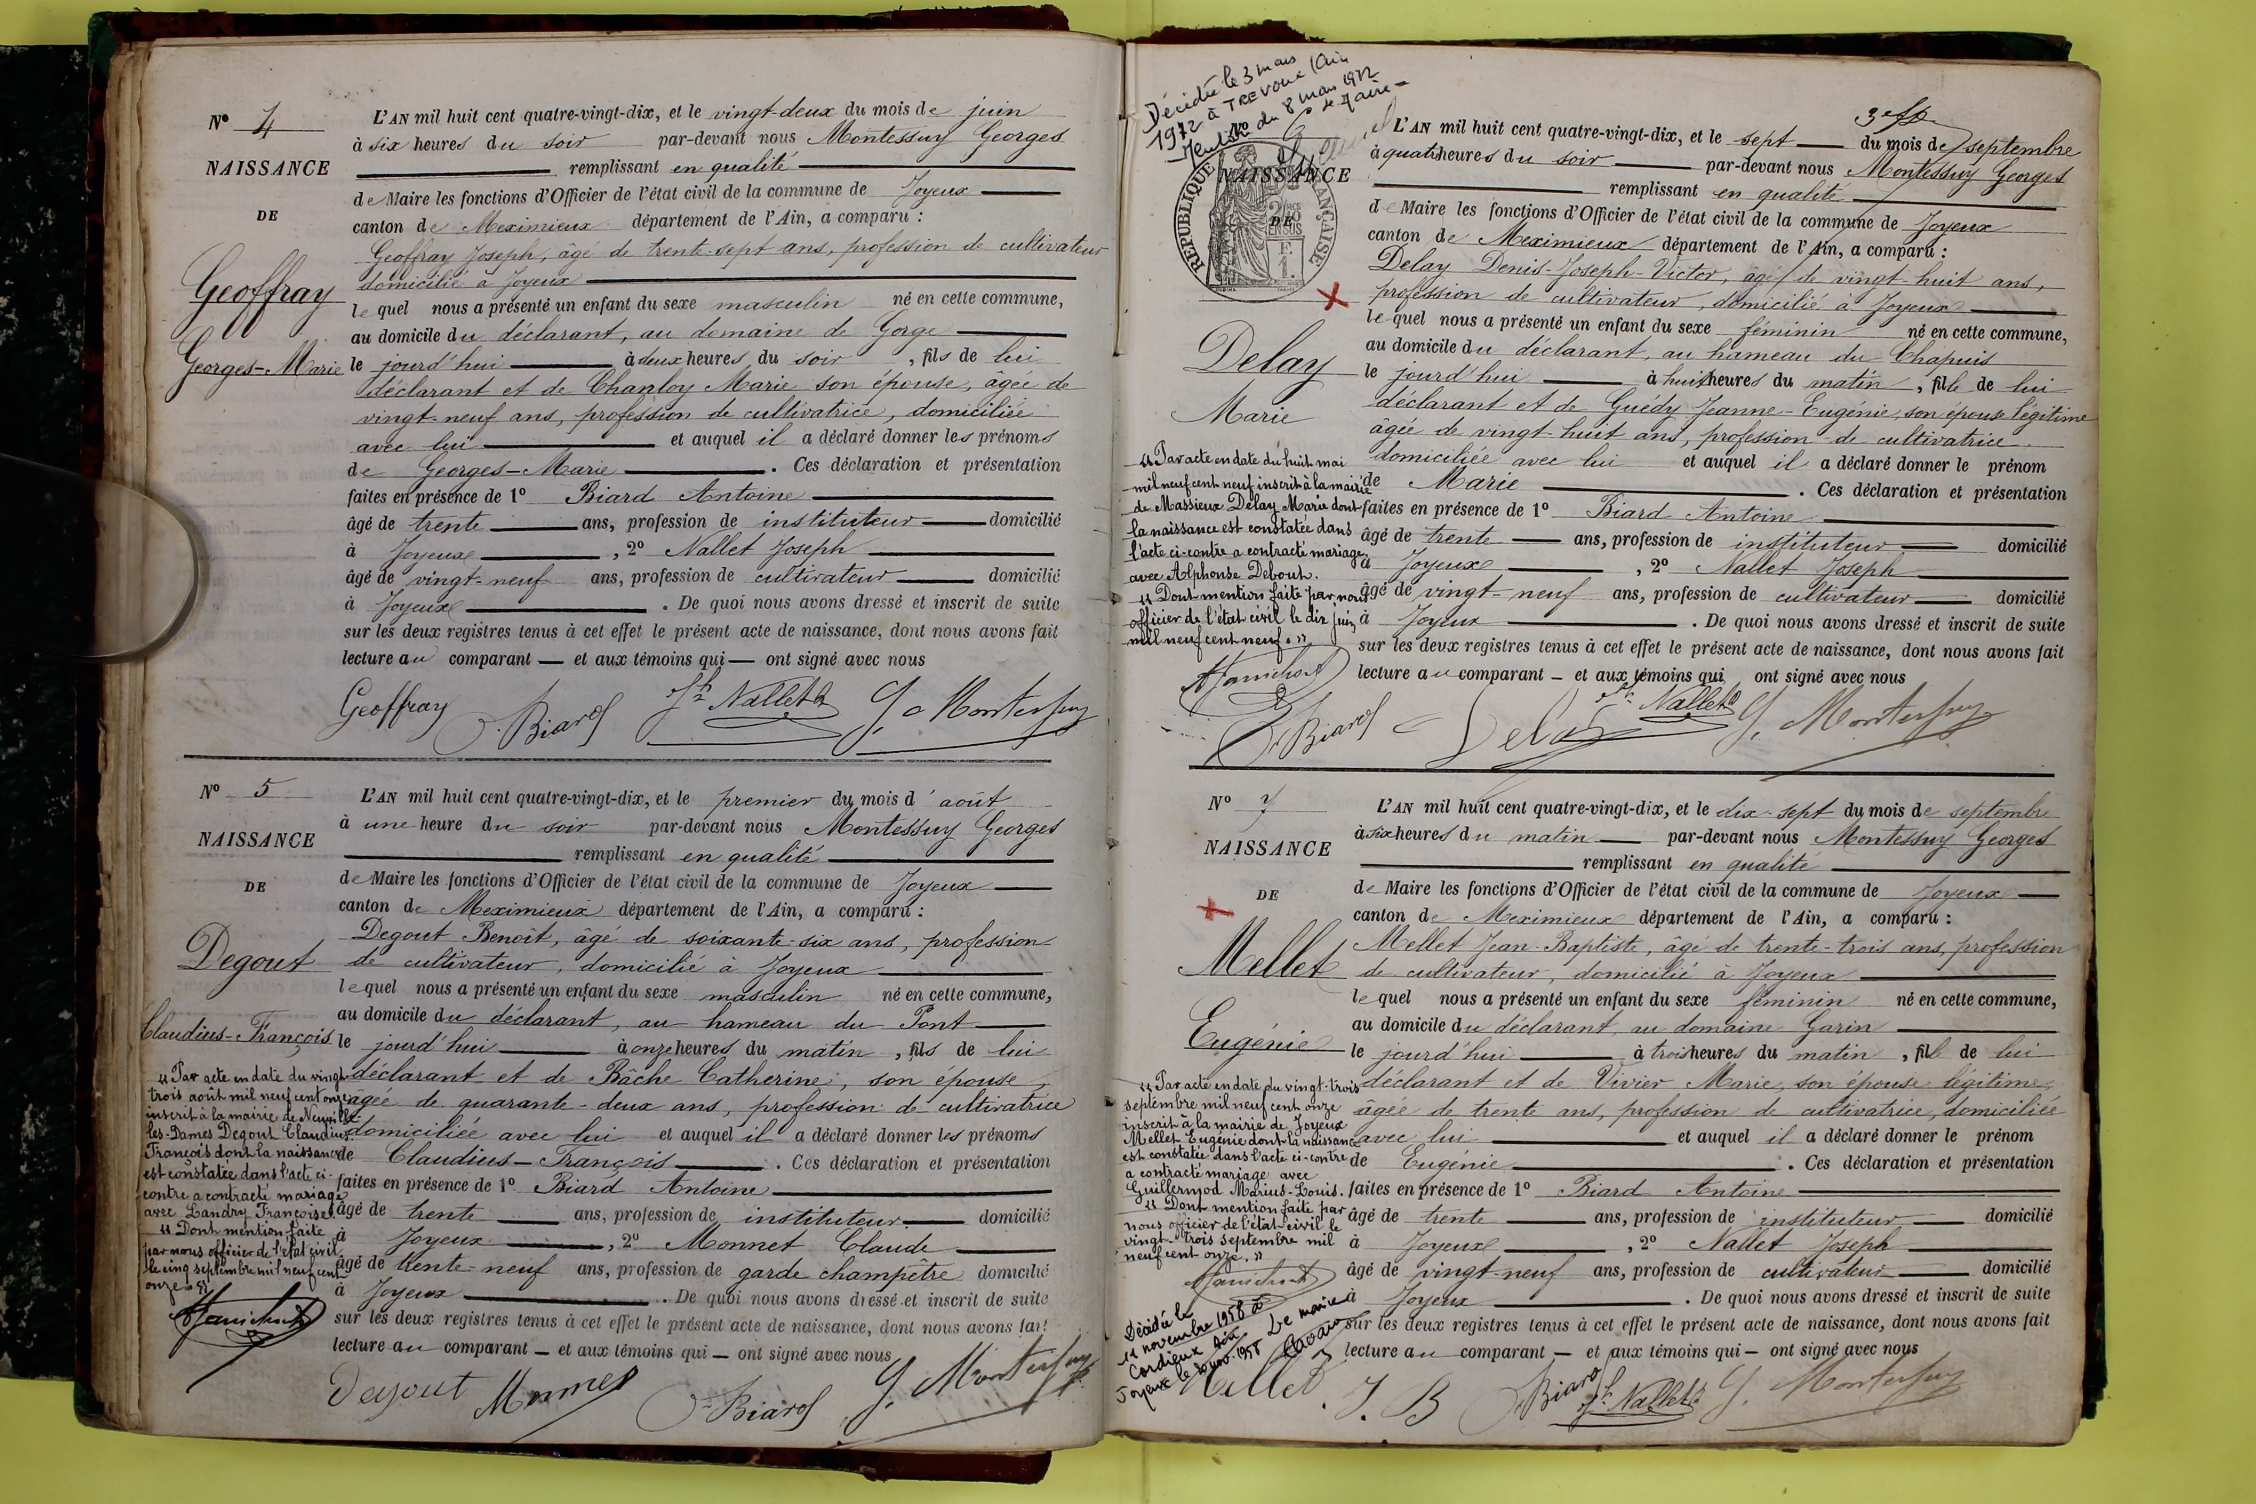 Nº 4
NAISSANCE
DE
Geoffray
Georges-Marie
L'AN mil huit cent quatre-vingt-dix, et le vingt-deux du mois de juin
à six heures du soir par-devant nous Montessuy Georges
remplissant en qualité
de Maire les fonctions d'Officier de l'état civil de la commune de Joyeux
canton de Meximieux département de l'Ain, a comparu :
Geoffray Joseph, âgé de trente-sept ans, profession de cultivateur
domicilié à Joyeux
lequel nous a présenté un enfant du sexe masculin né en cette commune,
au domicile du déclarant, au domaine de Gorge
le jourd'hui à deux heures du soir, fils de lui
déclarant et de Chanloy Marie son épouse, âgée de
vingt-neuf ans, profession de cultivatrice, domiciliée
avec lui et auquel il a déclaré donner les prénoms
de Georges-Marie. Ces déclaration et présentation
faites en présence de 1º Biard Antoine
âgé de trente ans, profession de instituteur domicilié
à Joyeux, 2º Nallet Joseph
âgé de vingt-neuf ans, profession de cultivateur domicilié
à Joyeux. De quoi nous avons dressé et inscrit de suite
sur les deux registres tenus à cet effet le présent acte de naissance, dont nous avons fait
lecture au comparant — et aux témoins qui — ont signé avec nous
Geoffray Biard Jh Nallet G. Montessuy
Nº 5
NAISSANCE
DE
Degout
Claudius-François
L'AN mil huit cent quatre-vingt-dix, et le premier du mois d'août
à une heure du soir par-devant nous Montessuy Georges
remplissant en qualité
de Maire les fonctions d'Officier de l'état civil de la commune de Joyeux
canton de Meximieux département de l'Ain, a comparu :
Degout Benoît, âgé de soixante-six ans, profession
de cultivateur, domicilié à Joyeux
lequel nous a présenté un enfant du sexe masculin né en cette commune,
au domicile du déclarant, au hameau du Pont
le jourd'hui à onze heures du matin, fils de lui
déclarant et de Bâche Catherine, son épouse,
âgée de quarante-deux ans, profession de cultivatrice
domiciliée avec lui et auquel il a déclaré donner les prénoms
de Claudius-François. Ces déclaration et présentation
faites en présence de 1º Biard Antoine
âgé de trente ans, profession de instituteur domicilié
à Joyeux, 2º Monnet Claude
âgé de trente-neuf ans, profession de garde champêtre domicilié
à Joyeux. De quoi nous avons dressé et inscrit de suite
sur les deux registres tenus à cet effet le présent acte de naissance, dont nous avons fait
lecture au comparant — et aux témoins qui — ont signé avec nous
"Par acte en date du vingt-
trois août mil neuf cent onze
inscrit à la mairie de Neuville-
les-Dames Degout Claudius-
François dont la naissance
est constatée dans l'acte ci-
contre a contracté mariage
avec Landry Françoise.
"Dont mention faite
par nous officier de l'état civil
le cinq septembre mil neuf cent
onze."
Degout Monnet Biard G. Montessuy
Décédée le 3 mars
1972 à TREVOUX (Ain
du 8 mars 1972
Le Maire
Nº 6
NAISSANCE
DE
RÉPUBLIQUE FRANÇAISE
Delay
Marie
L'AN mil huit cent quatre-vingt-dix, et le sept du mois de septembre
à quatre heures du soir par-devant nous Montessuy Georges
remplissant en qualité
de Maire les fonctions d'Officier de l'état civil de la commune de Joyeux
canton de Meximieux département de l'Ain, a comparu :
Delay Denis-Joseph-Victor, âgé de vingt-huit ans,
profession de cultivateur, domicilié à Joyeux
lequel nous a présenté un enfant du sexe féminin né en cette commune,
au domicile du déclarant, au hameau du Chapuis
le jourd'hui à huit heures du matin, fille de lui
déclarant et de Guédy Jeanne-Eugénie, son épouse légitime
âgée de vingt-huit ans, profession de cultivatrice
domiciliée avec lui et auquel il a déclaré donner le prénom
de Marie. Ces déclaration et présentation
faites en présence de 1º Biard Antoine
âgé de trente ans, profession de instituteur domicilié
à Joyeux, 2º Nallet Joseph
âgé de vingt-neuf ans, profession de cultivateur domicilié
à Joyeux. De quoi nous avons dressé et inscrit de suite
sur les deux registres tenus à cet effet le présent acte de naissance, dont nous avons fait
lecture au comparant — et aux témoins qui ont signé avec nous
"Par acte en date du huit mai
mil neuf cent neuf inscrit à la mairie
de Massieux Delay Marie dont
la naissance est constatée dans
l'acte ci-contre a contracté mariage
avec Alphonse Debout.
"Dont mention faite par nous
officier de l'état civil le dix juin
mil neuf cent neuf."
Biard Delay Jh Nallet G. Montessuy
Nº 7
NAISSANCE
DE
Mellet
Eugénie
L'AN mil huit cent quatre-vingt-dix, et le dix-sept du mois de septembre
à six heures du matin par-devant nous Montessuy Georges
remplissant en qualité
de Maire les fonctions d'Officier de l'état civil de la commune de Joyeux
canton de Meximieux département de l'Ain, a comparu :
Mellet Jean-Baptiste, âgé de trente-trois ans, profession
de cultivateur, domicilié à Joyeux
lequel nous a présenté un enfant du sexe féminin né en cette commune,
au domicile du déclarant, au domaine Garin
le jourd'hui à trois heures du matin, fille de lui
déclarant et de Vivier Marie, son épouse légitime,
âgée de trente ans, profession de cultivatrice, domiciliée
avec lui et auquel il a déclaré donner le prénom
de Eugénie. Ces déclaration et présentation
faites en présence de 1º Biard Antoine
âgé de trente ans, profession de instituteur domicilié
à Joyeux, 2º Nallet Joseph
âgé de vingt-neuf ans, profession de cultivateur domicilié
à Joyeux. De quoi nous avons dressé et inscrit de suite
sur les deux registres tenus à cet effet le présent acte de naissance, dont nous avons fait
lecture au comparant — et aux témoins qui — ont signé avec nous
"Par acte en date du vingt-trois
septembre mil neuf cent onze
inscrit à la mairie de Joyeux
Mellet Eugénie dont la naissance
est constatée dans l'acte ci-contre
a contracté mariage avec
Guillermod Marius-Louis.
"Dont mention faite par
nous officier de l'état civil le
vingt-trois septembre mil
neuf cent onze."
Décédée le
14 novembre 1958 à
Cordieux Ain
Joyeux le 20 nov. 1958 Le maire
Mellet J. B Biard Jh Nallet G. Montessuy